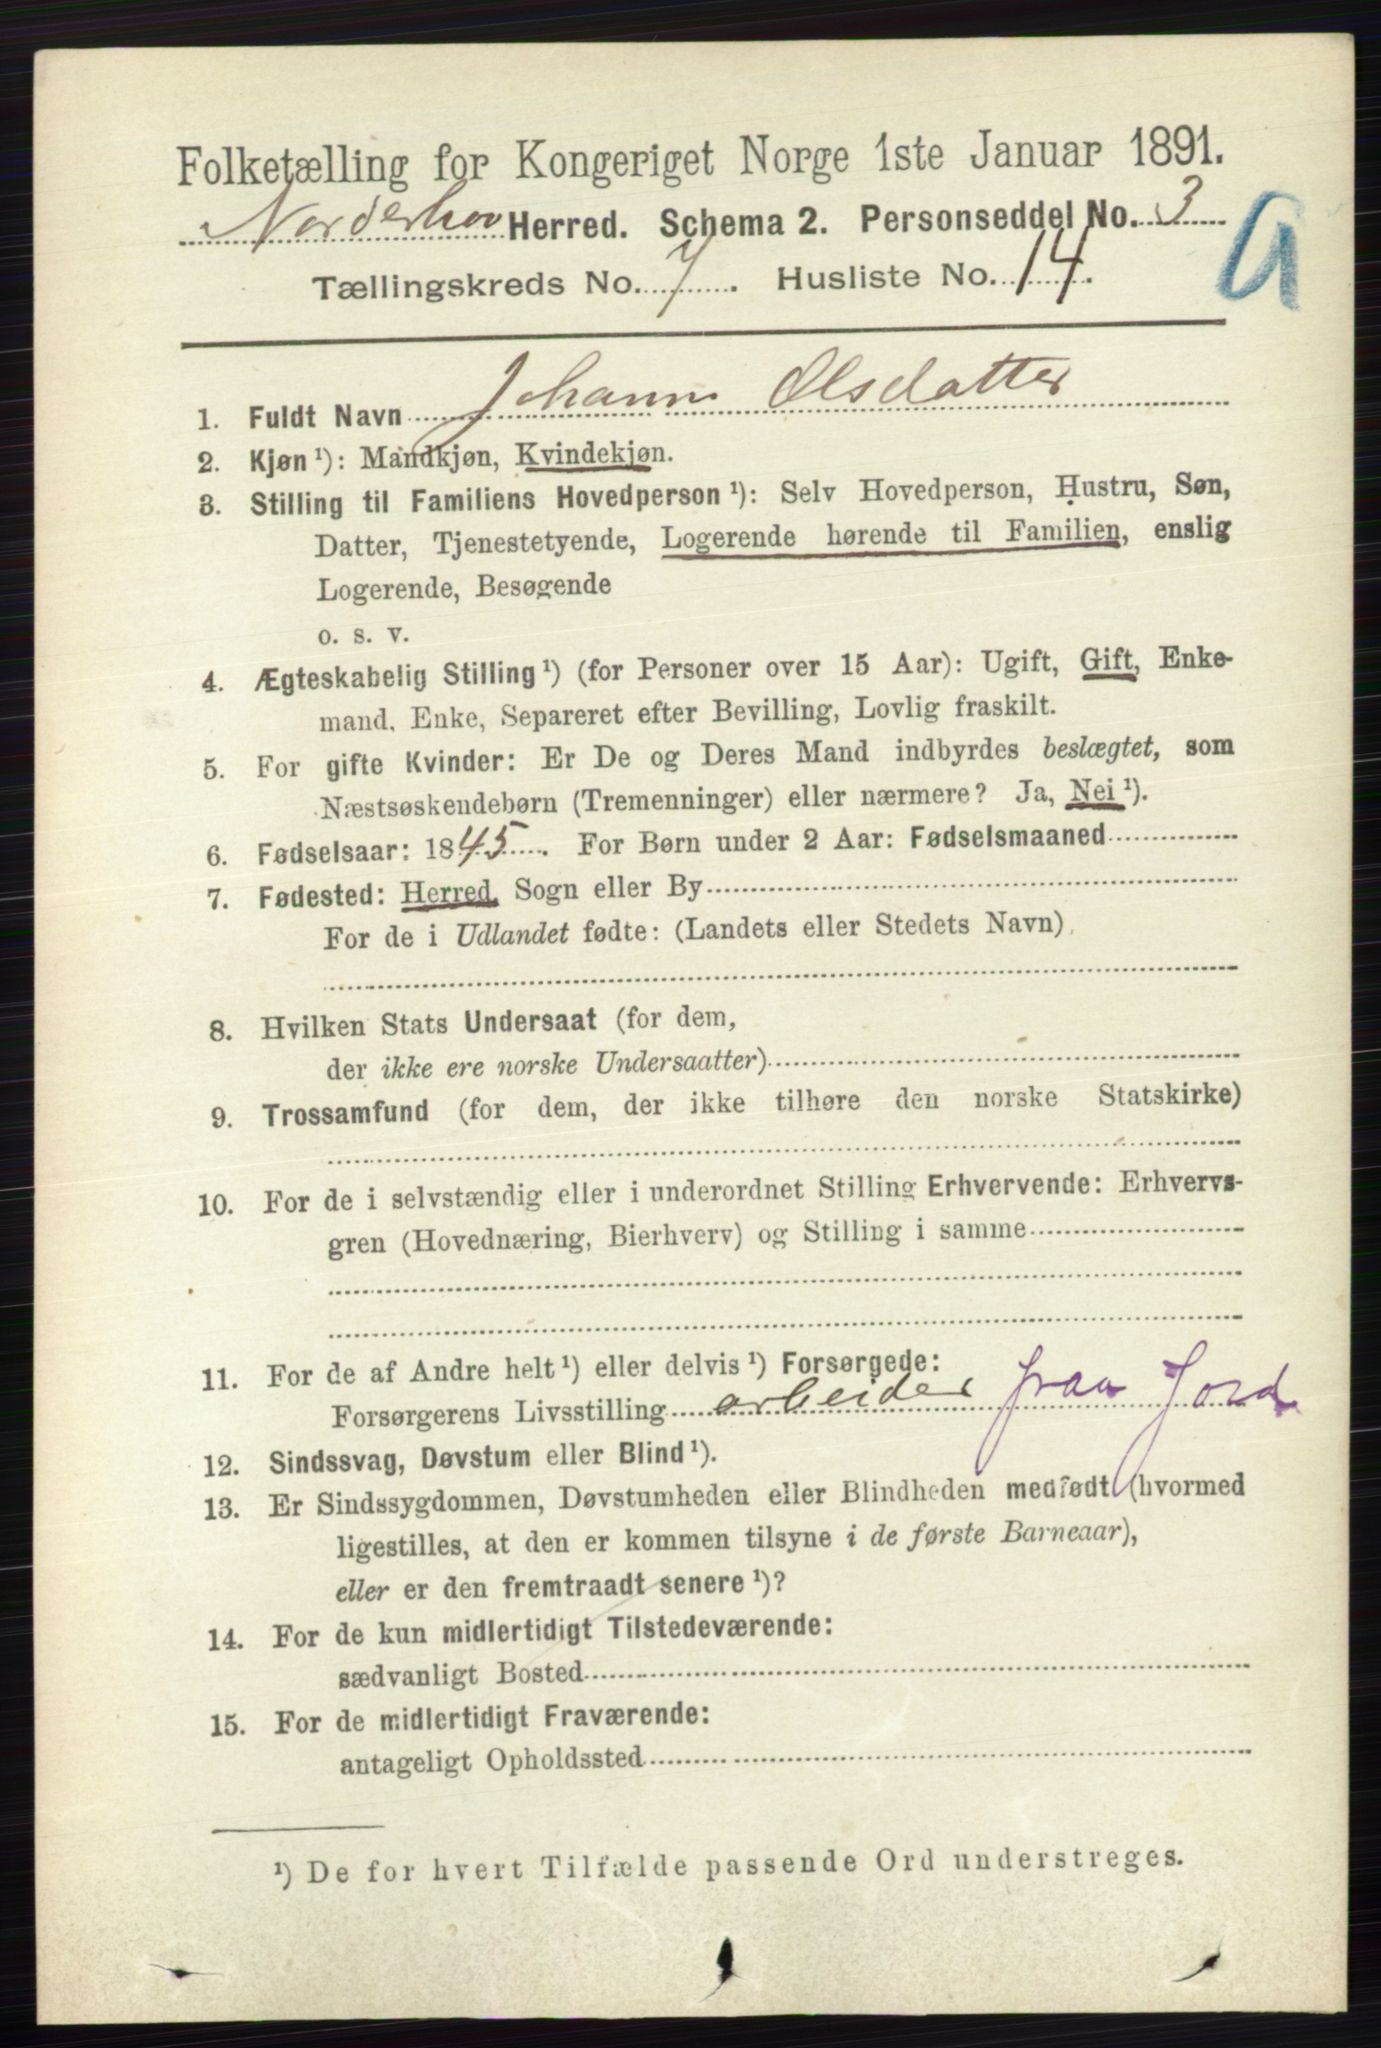 Folketælling for Kongeriget Norge 1ste Januar 1891.
Norderhov Herred. Schema 2. Personseddel No. 3
G
Tællingskreds No. 7. Husliste No. 14.
1. Fuldt Navn Johanne Olsdatter
2. Kjøn ¹): Mandkjøn, Kvindekjøn.
3. Stilling til Familiens Hovedperson ¹): Selv Hovedperson, Hustru, Søn,
Datter, Tjenestetyende, Logerende hørende til Familien, enslig
Logerende, Besøgende
o. s. v.
4. Ægteskabelig Stilling ¹) (for Personer over 15 Aar): Ugift, Gift, Enke-
mand, Enke, Separeret efter Bevilling, Lovlig fraskilt.
5. For gifte Kvinder: Er De og Deres Mand indbyrdes beslægtet, som
Næstsøskendebørn (Tremenninger) eller nærmere? Ja, Nei ¹).
6. Fødselsaar: 1845. For Børn under 2 Aar: Fødselsmaaned
7. Fødested: Herred, Sogn eller By
For de i Udlandet fødte: (Landets eller Stedets Navn)
8. Hvilken Stats Undersaat (for dem,
der ikke ere norske Undersaatter)
9. Trossamfund (for dem, der ikke tilhøre den norske Statskirke)
10. For de i selvstændig eller i underordnet Stilling Erhvervende: Erhvervs-
gren (Hovednæring, Bierhverv) og Stilling i samme
11. For de af Andre helt ¹) eller delvis ¹) Forsørgede:
Forsørgerens Livsstilling arbeider fraa Jord
12. Sindssvag, Døvstum eller Blind ¹).
13. Er Sindssygdommen, Døvstumheden eller Blindheden medfødt (hvormed
ligestilles, at den er kommen tilsyne i de første Barneaar),
eller er den fremtraadt senere ¹)?
14. For de kun midlertidigt Tilstedeværende:
sædvanligt Bosted
15. For de midlertidigt Fraværende:
antageligt Opholdssted
¹) De for hvert Tilfælde passende Ord understreges.